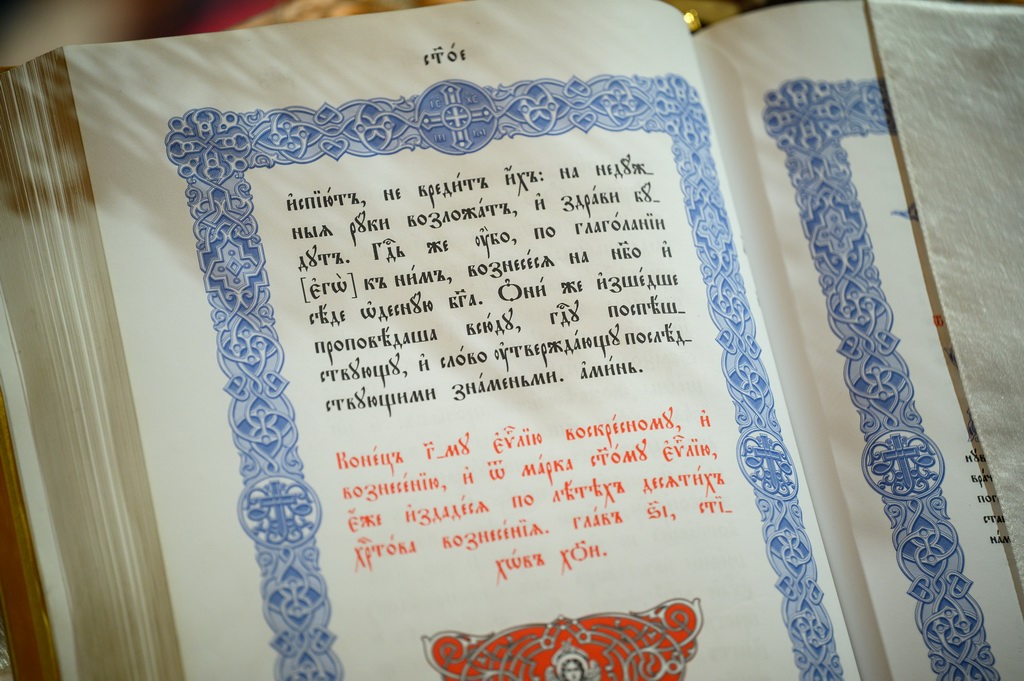 ст҃о́е
и҆спїю́тъ, не вреди́тъ и҆́хъ: на недꙋ́ж_
ныѧ рꙋ́ки возложа́тъ, и҆ здра́ви бꙋ́_
дꙋтъ. Гдⷭ҇ь же ᲂу҆́бо, по глаго́ланїи
[є҆гѡ̀] къ ни̑мъ, вознесе́сѧ на нб҃о и҆
сѣ́де ѡ҆деснꙋ́ю бг҃а. Ѻ҆ни́ же и҆зше́дше
проповѣ́даша всю́дꙋ, гдⷭ҇ꙋ поспѣ́ш_
ствꙋющꙋ, и҆ сло́во ᲂу҆твержда́ющꙋ послѣ́д_
ствꙋющими зна́меньми. а҆ми́нь.
Коне́цъ г҃_мꙋ є҆ѵⷢ҇лїю воскре́сномꙋ, и҆
вознесе́нїю, и҆ ѿ ма́рка ст҃о́мꙋ є҆ѵⷢ҇лїю,
є҆́же и҆здаде́сѧ по лѣ́тѣхъ десѧти́хъ
хрⷭ҇то́ва вознесе́нїѧ. гла́въ ѕ҃і, стї_
хѡ́въ хѻ҃и.